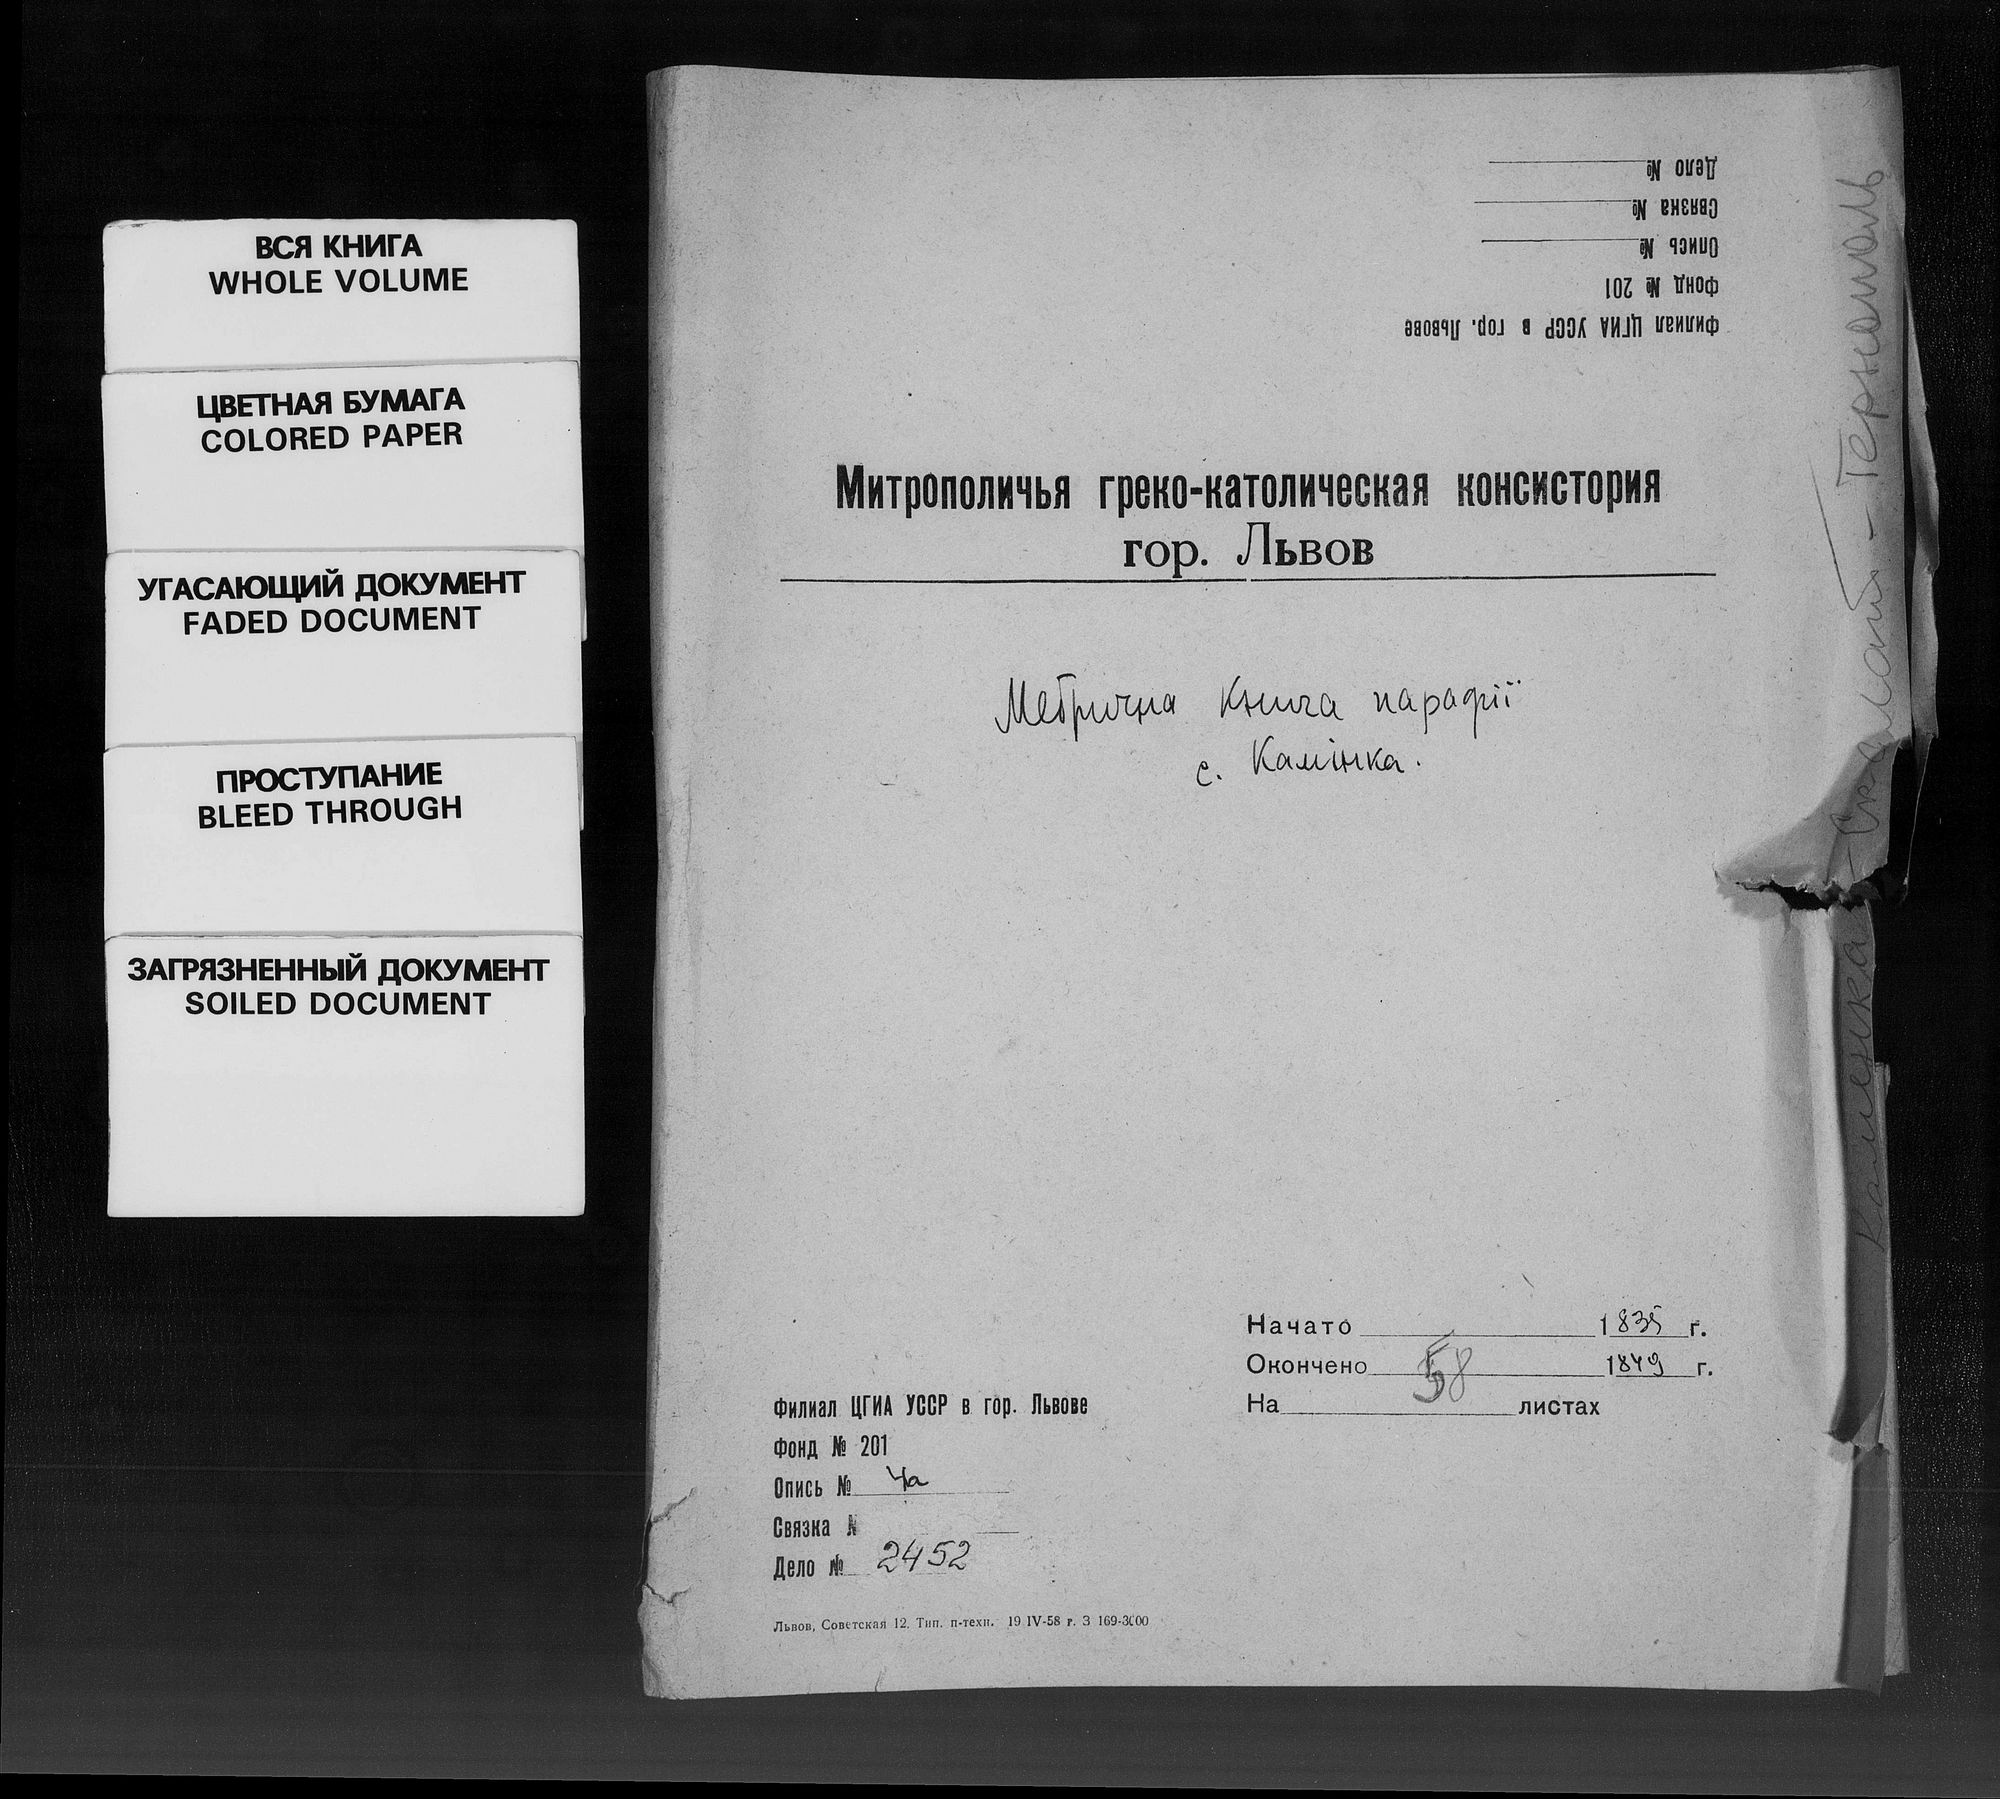 ВСЯ КНИГА
WHOLE VOLUME
ЦВЕТНАЯ БУМАГА
COLORED PAPER
УГАСАЮЩИЙ ДОКУМЕНТ
FADED DOCUMENT
ПРОСТУПАНИЕ
BLEED THROUGH
ЗАГРЯЗНЕННЫЙ ДОКУМЕНТ
SOILED DOCUMENT
Дело №
Связка №
Опись №
Фонд № 201
Филиал ЦГИА УССР в гор. Львове
Митрополичья греко-католическая консистория
гор. Львов
Метрична книга парафії
с. Камінка.
Начато 1835 г.
Окончено 1849 г.
На 58 листах
Филиал ЦГИА УССР в гор. Львове
Фонд № 201
Опись № 4а
Связка №
Дело № 2452
Львов, Советская 12. Тип. п-техн. 19 IV-58 г. З 169-3000
Каменка - Скалат - Тернополь